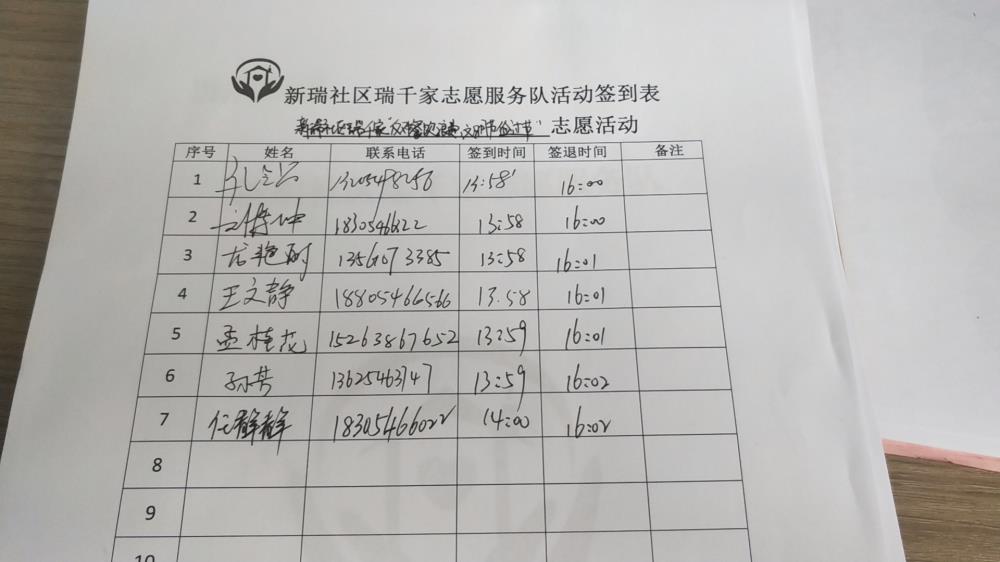 新瑞社区瑞千家志愿服务队活动签到表
新瑞社区瑞千家"反对餐饮浪费,文明节俭过节" 志愿活动
序号 姓名 联系电话 签到时间 签退时间 备注
1 13:58 16:00
2 13:58 16:00
3 13561073385 13:58 16:01
4 王文静 18805466566 13.58 16:01
5 孟桂花 15263867652 13:59 16:01
6 孙芳 13625463747 13:59 16:02
7 任静静 18305466022 14:00 16:02
8
9
10